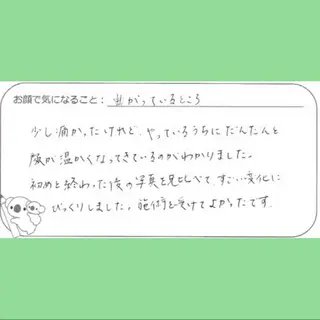 お顔で気になること：曲がっているところ
少し痛かったけれど、やっているうちにだんだんと
顔が温かくなってきているのがわかりました。
初めと終わった後の写真を見比べて、すごい変化に
びっくりしました。施術を受けてよかったです。